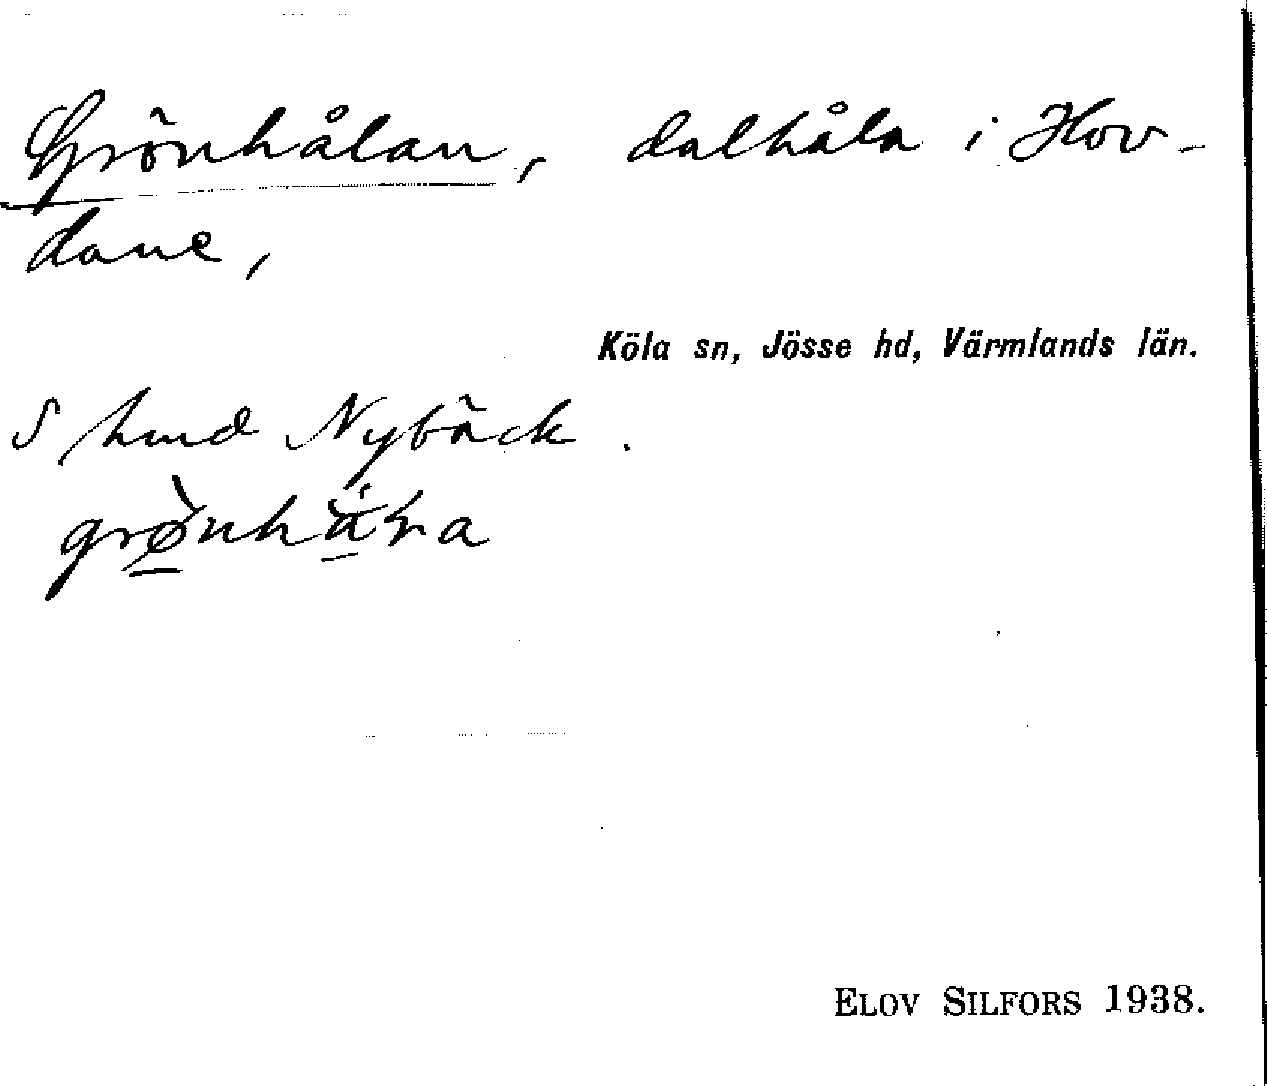 Grönhålan, dalhåla i Hov-
dane,
Köla sn, Jösse hd, Värmlands län.
S hmd Nybäck.
ELOV SILFORS 1938.